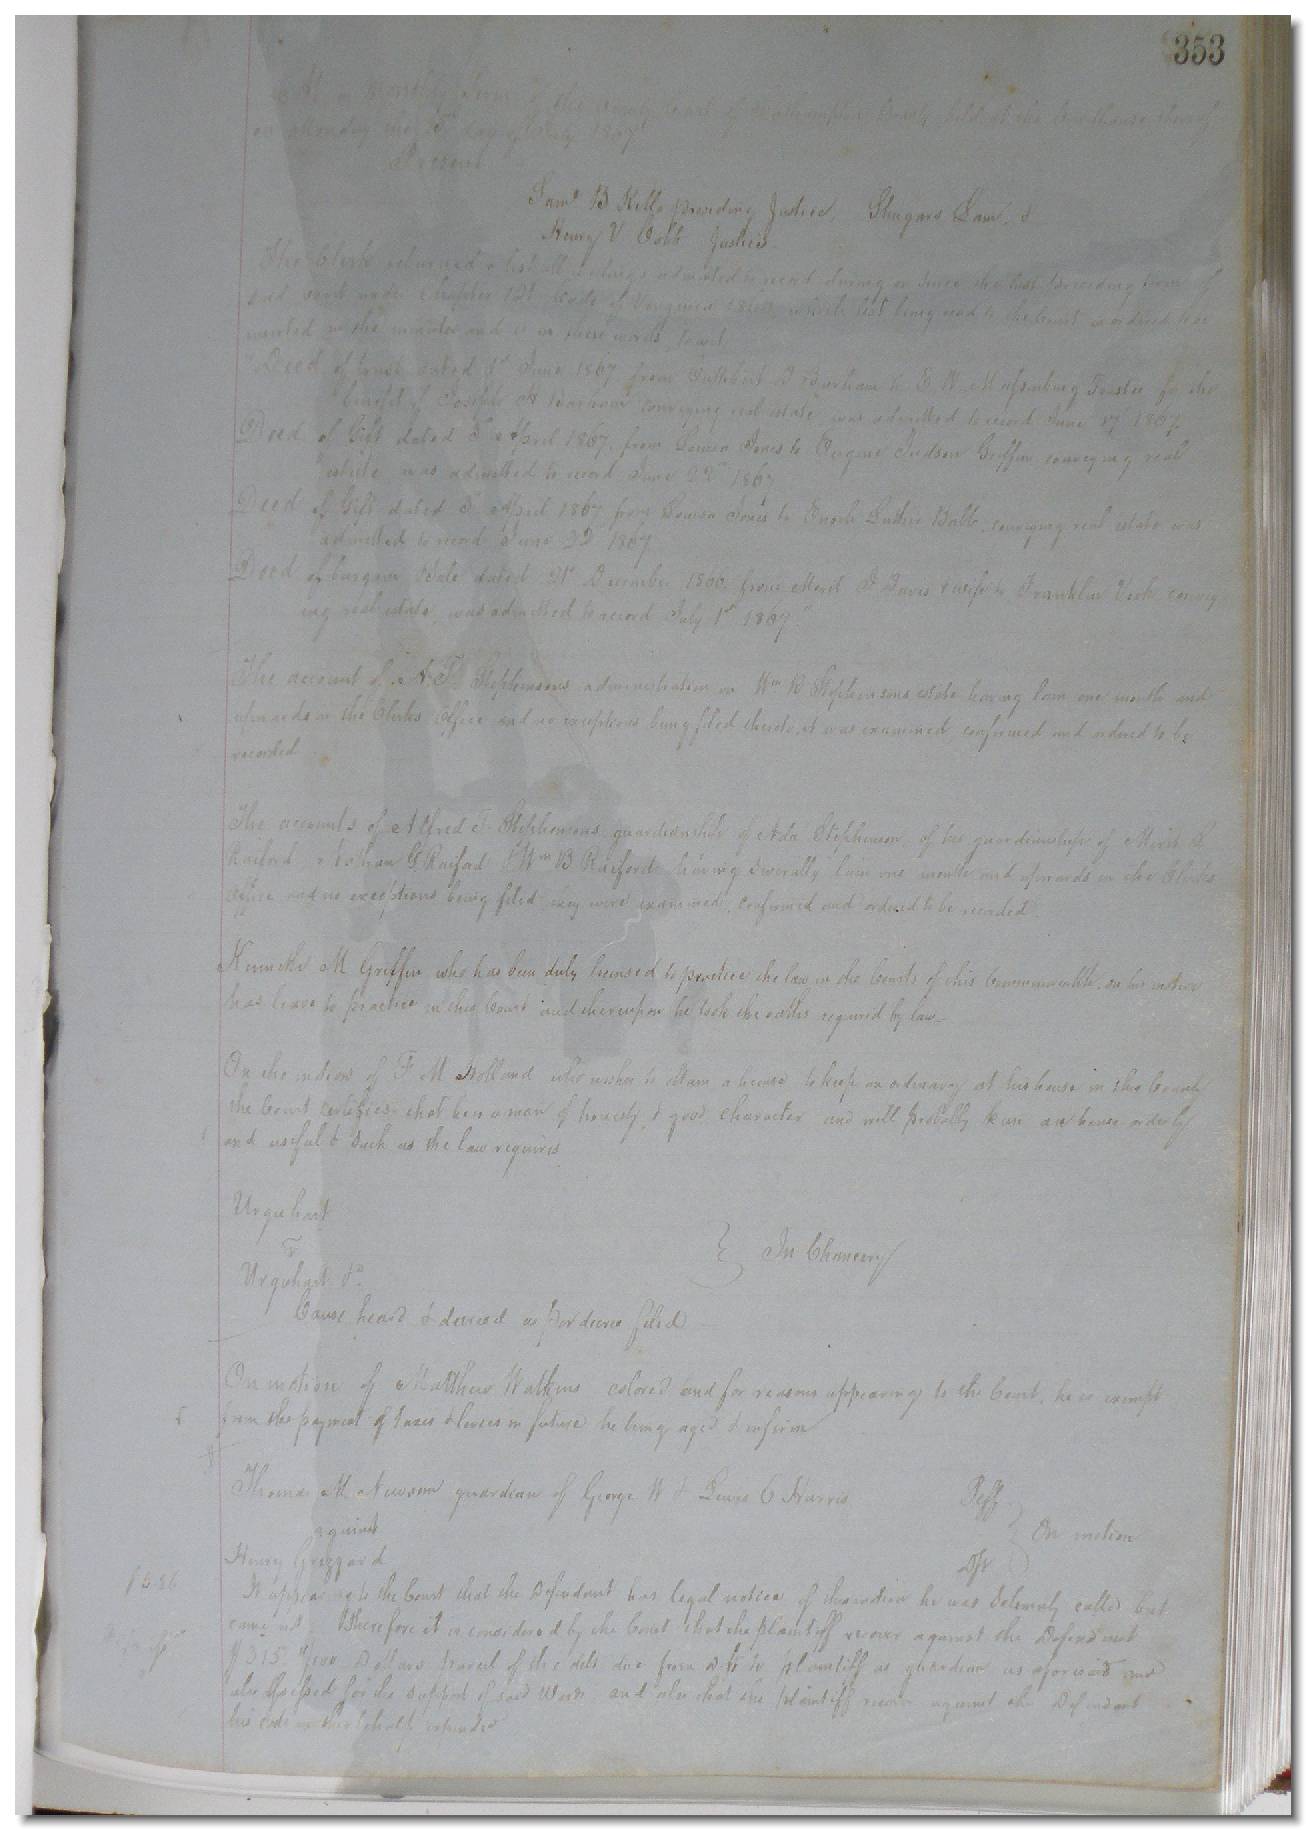 353
At a monthly Term of the County Court of Southampton County held at the Courthouse thereof
on Monday the 15th day of July 1867
Present
Saml B Kello presiding Justice, Shugars Lain &
Henry V Cobb Justices.
The Clerk returned a list all writings admitted to record during or since the last preceding term of
said court under Chapter 121 Code of Virginia 1860, which list being read to the Court is ordered to be
inserted in the minutes and is in these words, to wit
"Deed of trust dated 1st June 1867 from Cuthbert D Barham to E W Massenburg Trustee for the
benefit of Joseph H Barham conveying real estate was admitted to record June 17 1867
Deed of Gift dated 5 April 1867, from Louisa Jones to Judson Griffin conveying real
estate was admitted to record June 22d 1867
Deed of Gift dated 5 April 1867 from Louisa Jones to Enoch Luther Babb, conveying real estate was
admitted to record June 22 1867
Deed of bargain & Sale dated 21st December 1866, from Merit D Davis & wife to Franklin Vick convey
ing real estate, was admitted to record July 1st 1867."
The account of A. T. Stephensons administration on Wm B Stephensons estate having lain one month and
upwards in the Clerks Office and no exceptions being filed thereto, it was examined, confirmed and ordered to be
recorded
The accounts of Alfred T Stephensons guardianship of Ada Stephenson, of his guardianship of
Raiford, Nathan G Raiford & Wm B Raiford having severally lain one month and upwards in the Clerks
Office and no exceptions being filed they were examined, confirmed and ordered to be recorded.
M Griffin who has been duly licensed to practice the law in the Courts of this Commonwealth, on his motion
has leave to practice in this Court and thereupon he took the oaths required by law—
On the motion of F M Holland who wishes to obtain a license to keep an ordinary at his house in this County
the Court certifies that he is a man of honesty & good character and will probably keep an house orderly
and useful & such as the law requires
Urquhart
v
Urquhart &c.
} In Chancery
Cause heard & decreed as per decree filed —
On motion of Matthew Watkins colored and for reasons appearing to the Court, he is exempt
from the payment of taxes & levies in future he being aged & infirm
Thomas M. Newsom guardian of George W & Lewis O Harris Peff
against } On motion
Henry Grizzard Dft
It appearing to the Court that the Defendant has legal notice of this motion he was Solemnly called but
came not. Therefore it is considered by the Court that the plaintiff recover against the Defendant
$315 /100 Dollars parcel of the debt due from Dft to plaintiff as guardian as aforesaid and
also for the support of said Wards and also that the plaintiff recover against the Defendant
his costs in this behalf expended